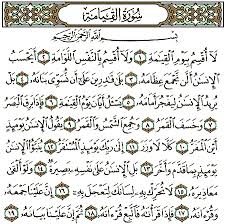 سُورَةُ القِيَامَة
بِسْمِ ٱللَّهِ ٱلرَّحْمَٰنِ ٱلرَّحِيمِ
لَآ أُقْسِمُ بِيَوْمِ ٱلْقِيَٰمَةِ ١ وَلَآ أُقْسِمُ بِٱلنَّفْسِ ٱللَّوَّامَةِ ٢ أَيَحْسَبُ
ٱلْإِنسَٰنُ أَلَّن نَّجْمَعَ عِظَامَهُۥ ٣ بَلَىٰ قَٰدِرِينَ عَلَىٰٓ أَن نُّسَوِّىَ بَنَانَهُۥ ٤ بَلْ
يُرِيدُ ٱلْإِنسَٰنُ لِيَفْجُرَ أَمَامَهُۥ ٥ يَسْـَٔلُ أَيَّانَ يَوْمُ ٱلْقِيَٰمَةِ ٦ فَإِذَا بَرِقَ ٱلْبَصَرُ ٧
وَخَسَفَ ٱلْقَمَرُ ٨ وَجُمِعَ ٱلشَّمْسُ وَٱلْقَمَرُ ٩ يَقُولُ ٱلْإِنسَٰنُ يَوْمَئِذٍ
أَيْنَ ٱلْمَفَرُّ ١٠ كَلَّا لَا وَزَرَ ١١ إِلَىٰ رَبِّكَ يَوْمَئِذٍ ٱلْمُسْتَقَرُّ ١٢ يُنَبَّؤُا۟ ٱلْإِنسَٰنُ
يَوْمَئِذٍۭ بِمَا قَدَّمَ وَأَخَّرَ ١٣ بَلِ ٱلْإِنسَٰنُ عَلَىٰ نَفْسِهِۦ بَصِيرَةٌ ١٤ وَلَوْ أَلْقَىٰ
مَعَاذِيرَهُۥ ١٥ لَا تُحَرِّكْ بِهِۦ لِسَانَكَ لِتَعْجَلَ بِهِۦٓ ١٦ إِنَّ عَلَيْنَا جَمْعَهُۥ
وَقُرْءَانَهُۥ ١٧ فَإِذَا قَرَأْنَٰهُ فَٱتَّبِعْ قُرْءَانَهُۥ ١٨ ثُمَّ إِنَّ عَلَيْنَا بَيَانَهُۥ ١٩